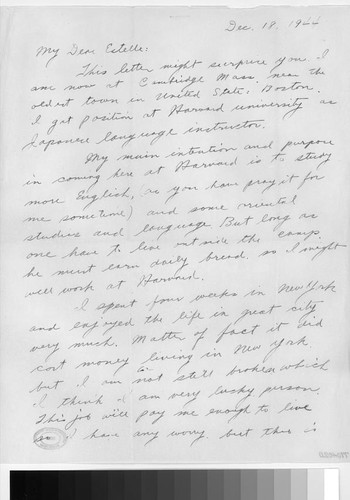 Dec. 18, 1944
My Dear Estelle:
This letter might surprise you. I
am now at Cambridge Mass. near the
oldest town in United State, Boston.
I got position at Harvard university as
Japanese language instructor.
My main intention and purpose
in coming here at Harvard is to study
more English, (as you have pray it for
me sometime) and some oriental
studies and language. But long as
one have to live outside the camp
he must earn daily bread. so I might
well work at Harvard.
I spent four weeks in New York
and enjoyed the life in great city
very much. Matter of fact it did
cost money living in New York
but I am not still broken which
I think I am very lucky person.
This job will pay me enough to live
I have any worry. but this is